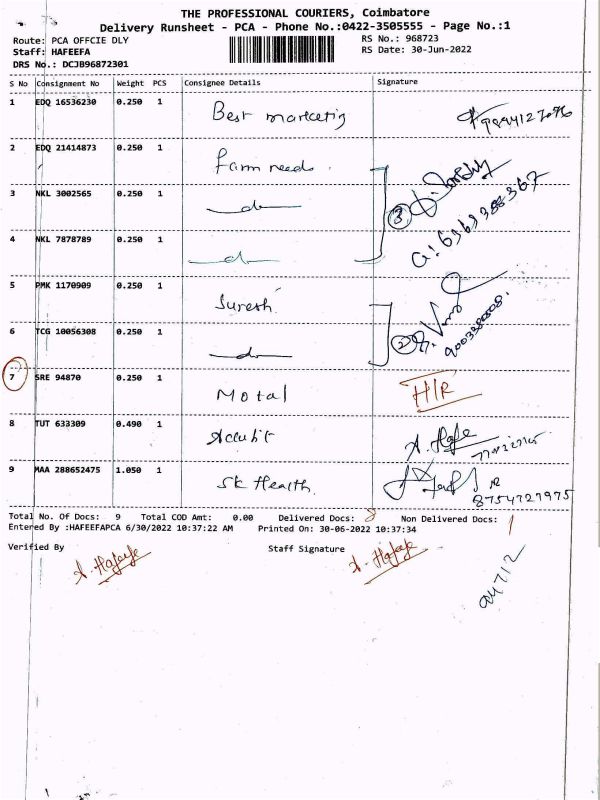 THE PROFESSIONAL COURIERS, Coimbatore
Delivery Runsheet - PCA - Phone No.:0422-3505555 - Page No.:1
Route: PCA OFFCIE DLY
RS No.: 968723
Staff: HAFEEFA
RS Date: 30-Jun-2022
DRS No.: DCJB96872301
S No Consignment No Weight PCS Consignee Details Signature
1 EDQ 16536230 0.250 1 Best marketing
2 EDQ 21414873 0.250 1 farm needs
3 NKL 3002565 0.250 1 do
3
4 NKL 7878789 0.250 1 do
5 PMK 1170909 0.250 1 Suresh
6 TCG 10056308 0.250 1 do
2
7 SRE 94870 0.250 1 Motal H/R
8 TUT 633309 0.490 1
9 MAA 288652475 1.050 1 SK Health
8754727975
Total No. Of Docs: 9 Total COD Amt: 0.00 Delivered Docs: 8 Non Delivered Docs: 1
Entered By :HAFEEFAPCA 6/30/2022 10:37:22 AM Printed On: 30-06-2022 10:37:34
Verified By Staff Signature